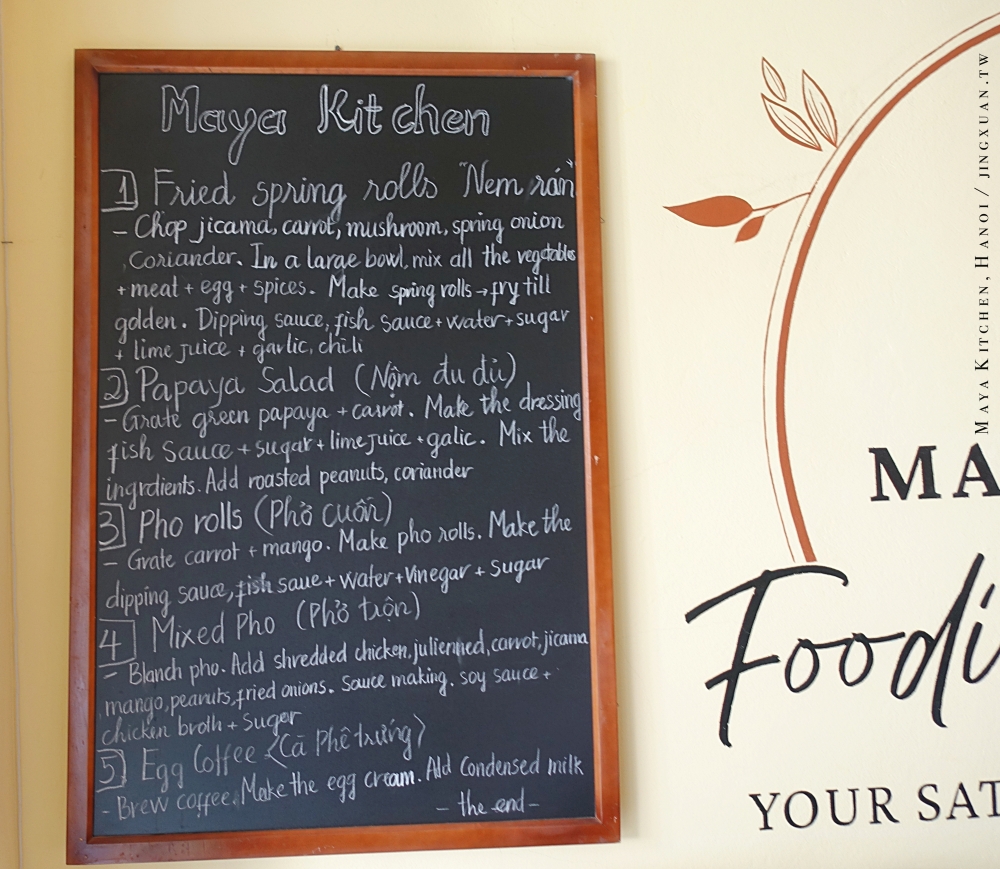 Maya Kitchen
1 Fried spring rolls "Nem rán"
- Chop jicama, carrot, mushroom, spring onion
, Coriander. In a large bowl, mix all the vegetables
+ meat + egg + spices. Make spring rolls → fry till
golden. Dipping sauce, fish sauce + water + sugar
+ lime juice + garlic, chili
2 Papaya Salad (Nộm đu đủ)
- Grate green papaya + carrot. Make the dressing
fish Sauce + sugar + lime juice + galic. Mix the
ingrdients. Add roasted peanuts, coriander
3 Pho rolls (Phở cuốn)
- Grate carrot + mango. Make pho rolls. Make the
dipping sauce, fish saue + water + Vinegar + sugar
4 Mixed Pho (Phở trộn)
- Blanch pho. Add shredded chicken, julienned, carrot, jicama
mango, peanuts, fried onions. Sauce making. soy sauce +
chicken broth + Sugar
5 Egg Coffee <Cà Phê trứng>
- Brew coffee. Make the egg cream. Add Condensed milk
- the end -
MA
Foodi
YOUR SAT
MAYA KITCHEN, HANOI / JINGXUAN.TW